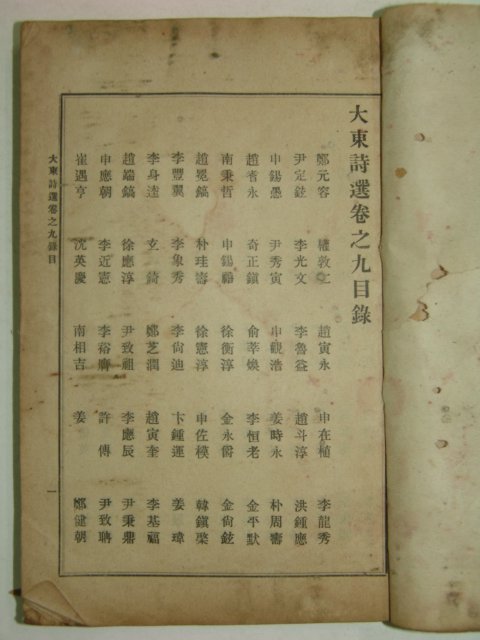 大東詩選卷之九目錄
鄭元容 權敦仁 趙寅永 申在植 李龍秀
尹定鉉 李光文 李魯益 趙斗淳 洪鍾應
申錫愚 尹秀寅 申觀浩 姜時永 朴周壽
趙省永 奇正鎭 俞莘煥 李恒老 金平默
南秉哲 申錫禧 徐衡淳 金永爵 金尙鉉
趙冕鎬 朴珪壽 徐憲淳 申佐模 韓鎭棨
李豐翼 李象秀 李尙迪 卞鍾運 姜 瑋
李身逵 玄 錡 鄭芝潤 趙寅奎 李基福
趙端鎬 徐應淳 尹致祖 李應辰 尹秉鼎
申應朝 李近憲 李裕膺 許 傳 尹致聃
崔遇亨 沈英慶 南相吉 姜 鄭健朝
大東詩選卷之九錄目
一